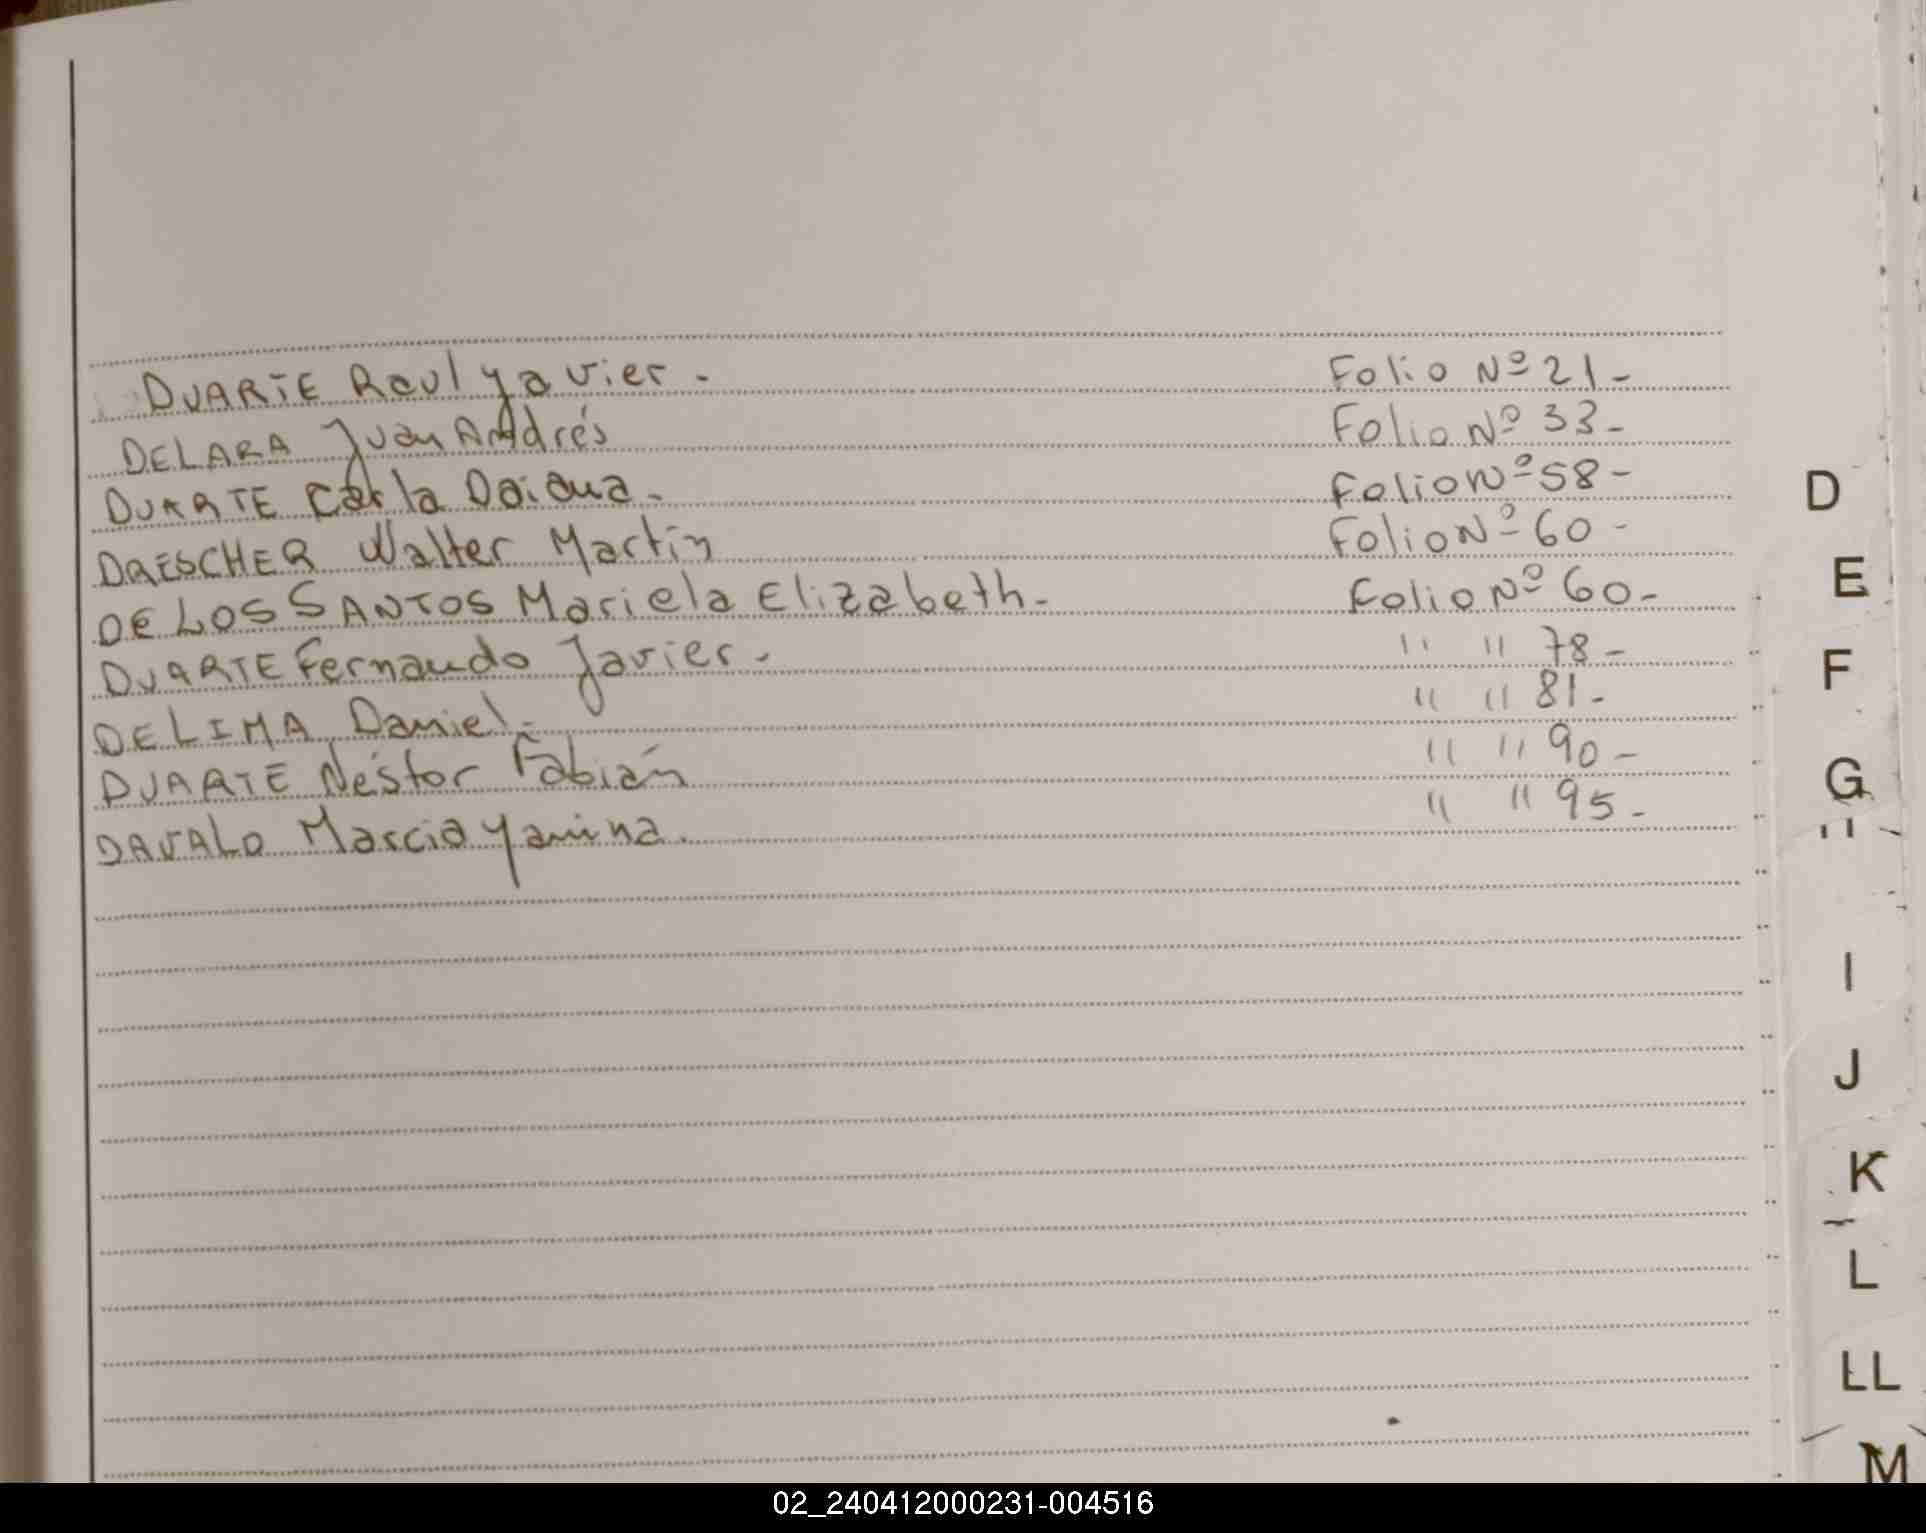 DUARTE Raul yavier - Folio Nº 21-
DELARA Juan Andrés Folio Nº 33-
DUARTE Carla Daiana - Folio Nº 58-
DRESCHER Walter Martín Folio Nº 60-
DE LOS SANTOS Mariela Elizabeth - Folio Nº 60-
DUARTE Fernando Javier - " " 78-
DELIMA Daniel - " " 81-
DUARTE Néstor Fabián " " 90-
DAVALO Marcia Yanina. " " 95-
D
E
F
G
I
J
K
L
LL
M
02_240412000231-004516